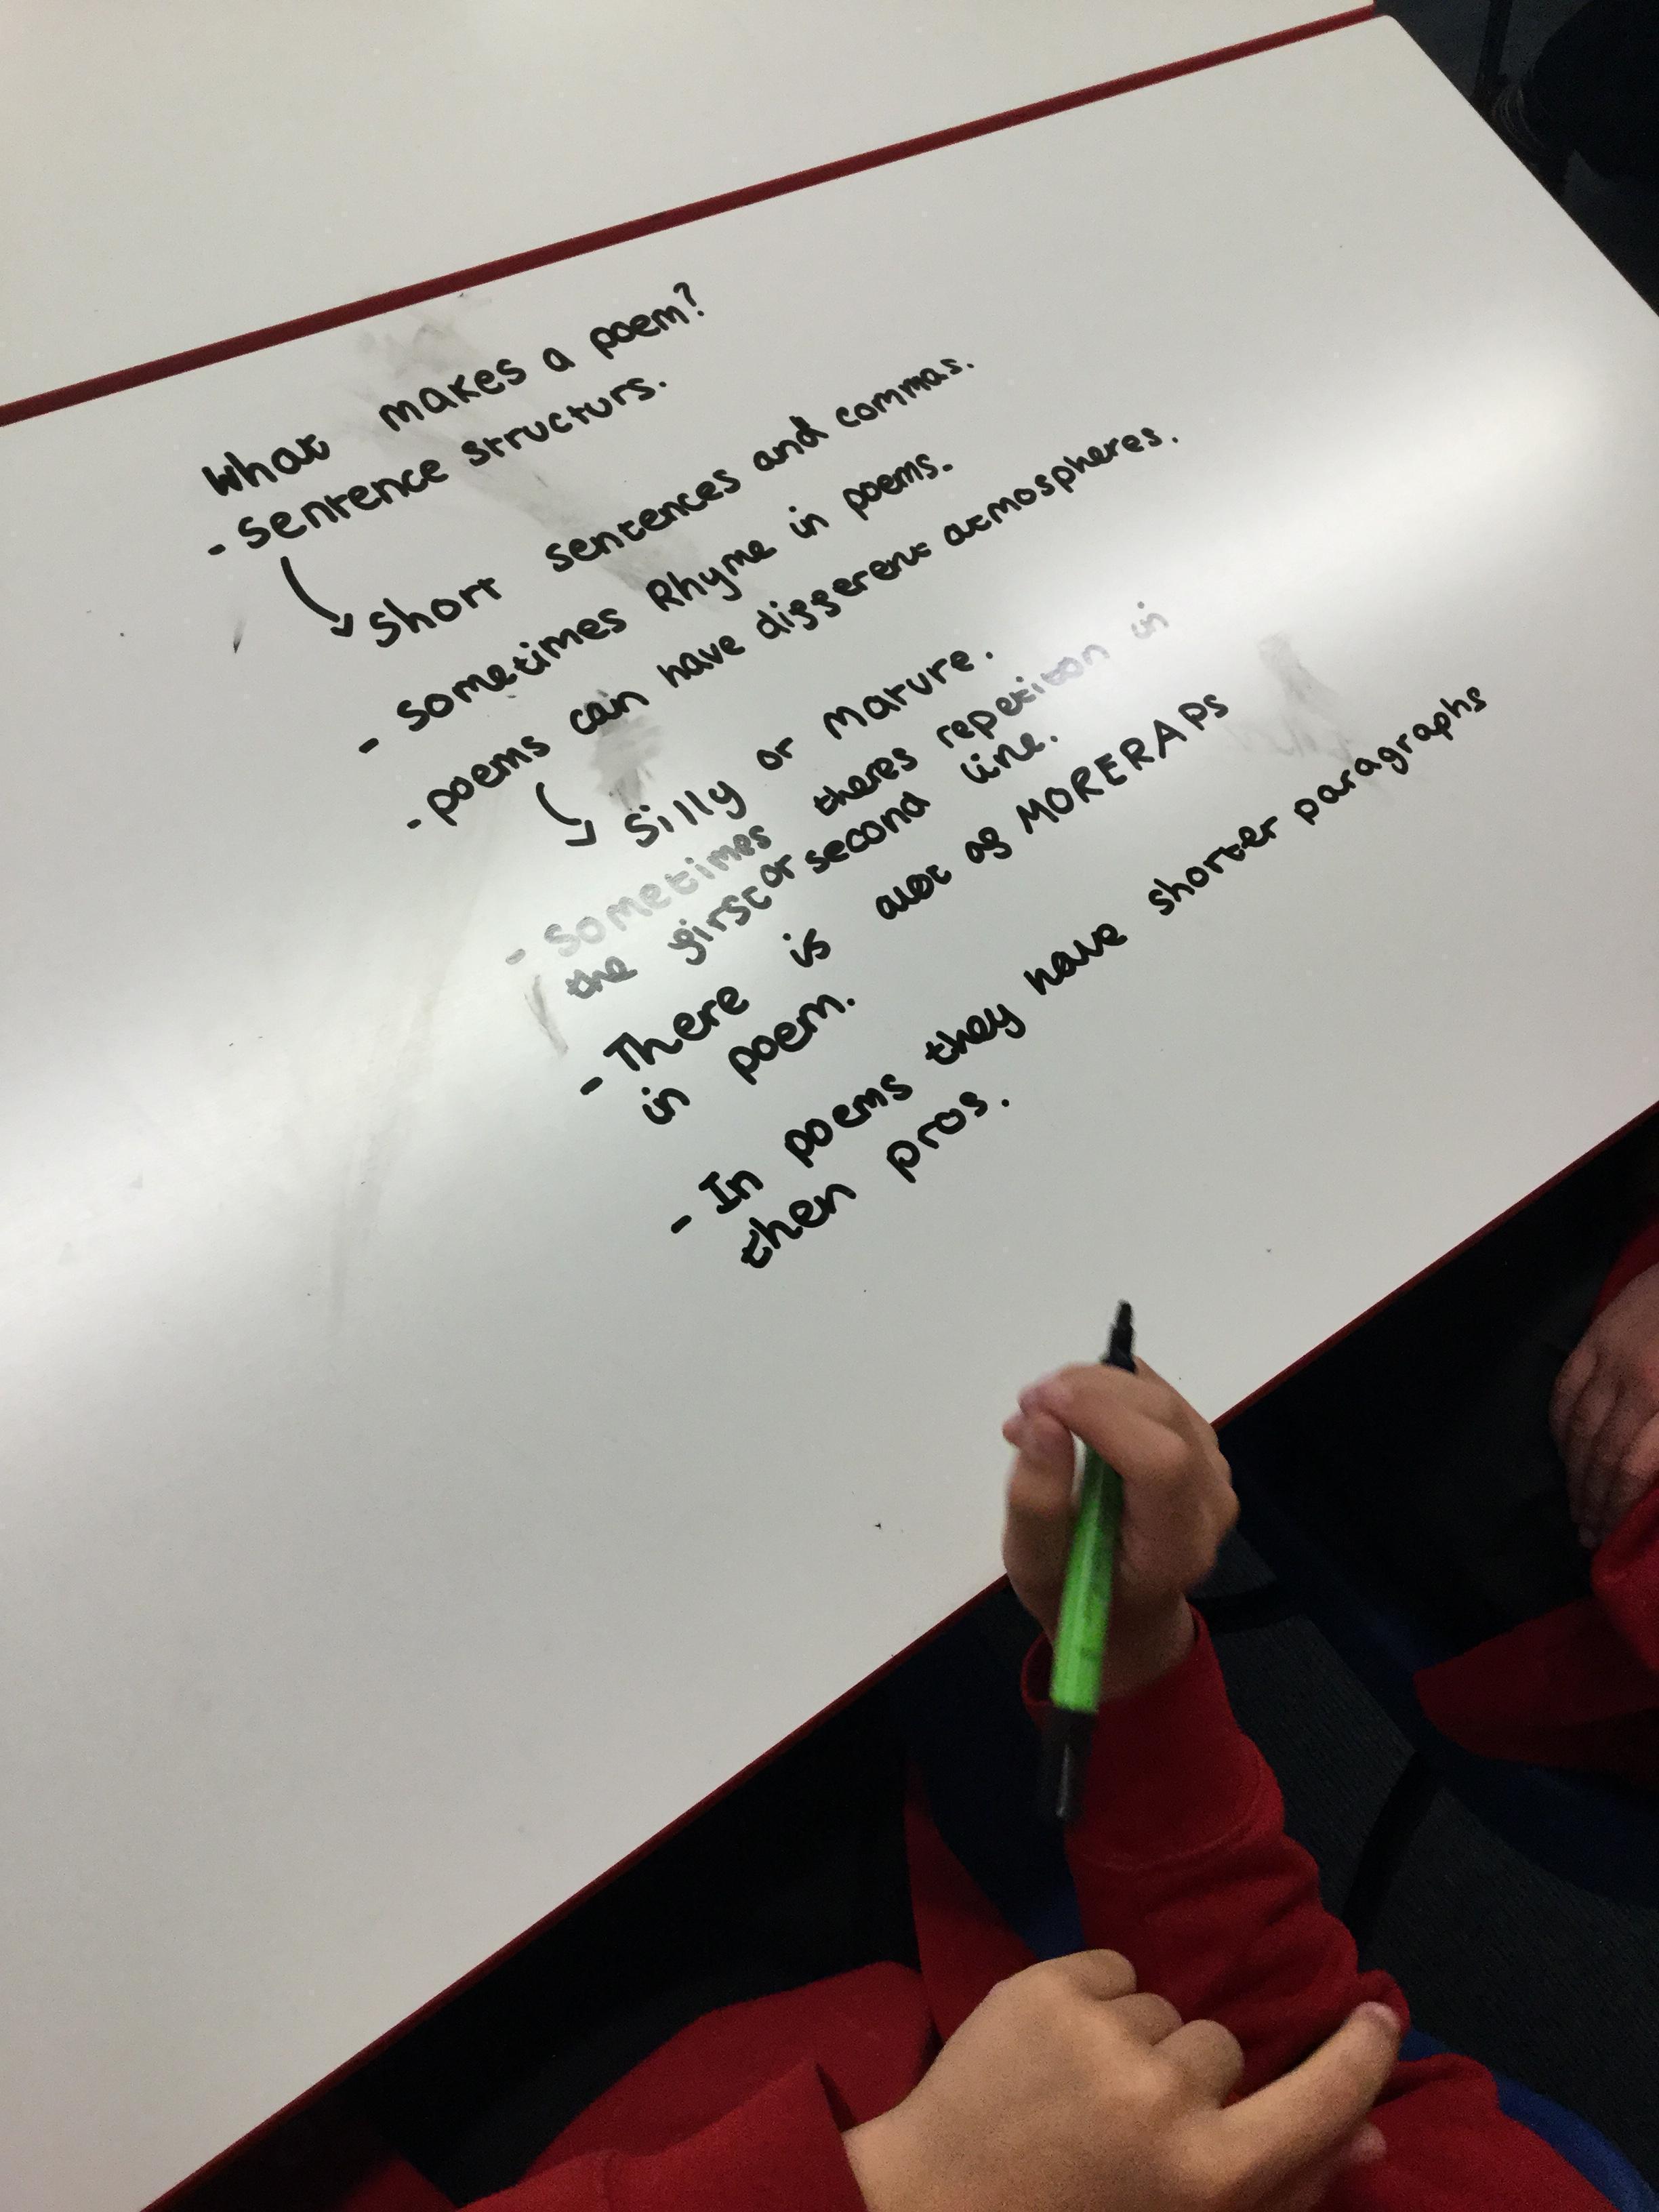 What makes a poem?
- Sentence structurs.
Short sentences and commas.
- Sometimes Rhyme in poems.
- poems can have different atmospheres.
Silly or Mature.
- Sometimes theres repetiton in
the first or second line.
- There is alot of MORERAPs
in poem.
- In poems they have shorter paragraphs
then pros.